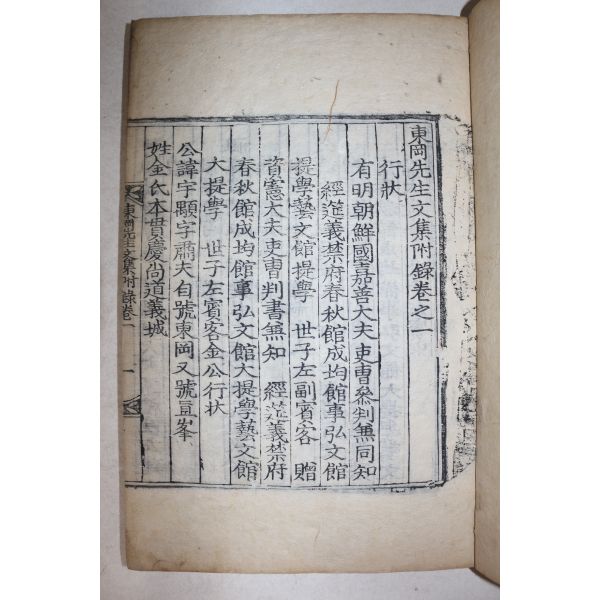 東岡先生文集附錄卷之一
行狀
有明朝鮮國嘉善大夫吏曹參判兼同知
經筵義禁府春秋館成均館事弘文館
提學藝文館提學 世子左副賓客 贈
資憲大夫吏曹判書兼知 經筵義禁府
春秋館成均館事弘文館大提學藝文館
大提學 世子左賓客金公行狀
公諱宇顒字肅夫自號東岡又號直峯
姓金氏本貫慶尙道義城
東岡先生文集附錄卷一 一